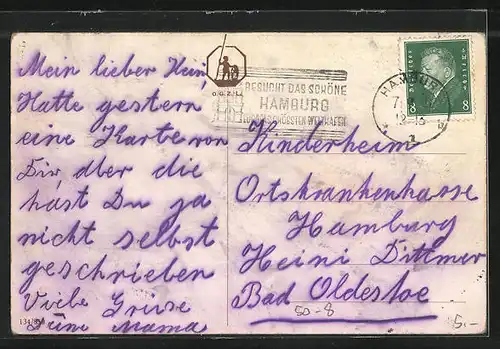 Mein lieber Hein,
Hatte gestern
eine Karte von
Dir, aber die
hast Du ja
nicht selbst
geschrieben
Viele Grüsse
Deine Mama
O.G.Z.L.
BESUCHT DAS SCHÖNE
HAMBURG
HAMBURG
7.
12-13
* 1 b
DEUTSCHES REICH
8 8
Kinderheim
Ortskrankenkasse
Hamburg
Heini Dittmer
Bad Oldesloe
50-8
5.-